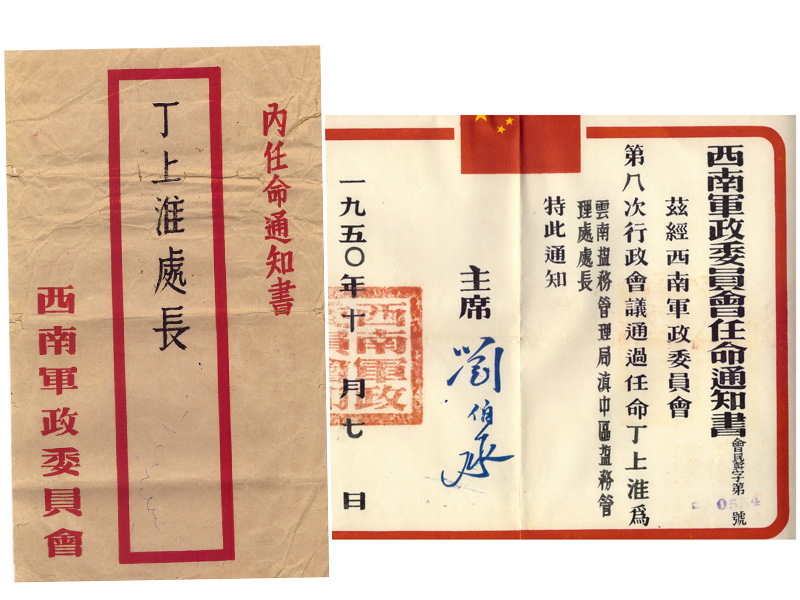 內任命通知書
丁上淮處長
西南軍政委員會
西南軍政委員會任命通知書
會員薪字第 號
茲經西南軍政委員會
第八次行政會議通過任命丁上淮為
雲南盐務管理局滇中區盐務管
理處處長
特此通知
主席
劉伯承
一九五〇年十 月七 日
西南軍政